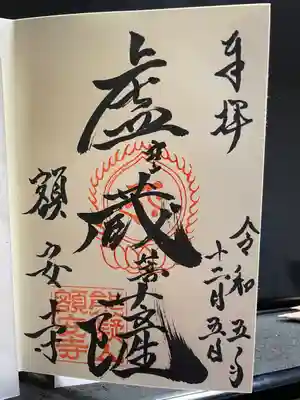 奉拝
令和五年
十二月五日
虚空蔵菩薩
額安寺
額安寺